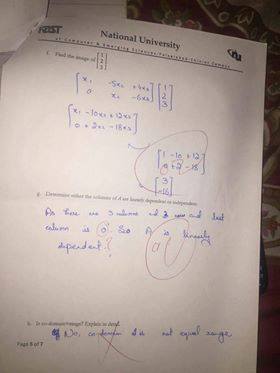 FAST
National University
of Computer & Emerging Sciences Faisalabad-Chiniot Campus
nu
f. Find the image of [1 2 3]
[x₁ -5x₂ +4x₃] [1]
[0 x₂ -6x₃] [2]
[3]
[x₁ -10x₂ +12x₃]
[0 +2x₂ -18x₃]
[1 -10 +12]
[0 +2 -18]
[3]
[-16]
g. Determine either the columns of A are linearly dependent or independent.
As there are 3 columns and 2 rows and last
column is 0 So A is linearly
dependent.
h. Is co-domain=range? Explain in detail.
No, co-domain is not equal range
Page 6 of 7